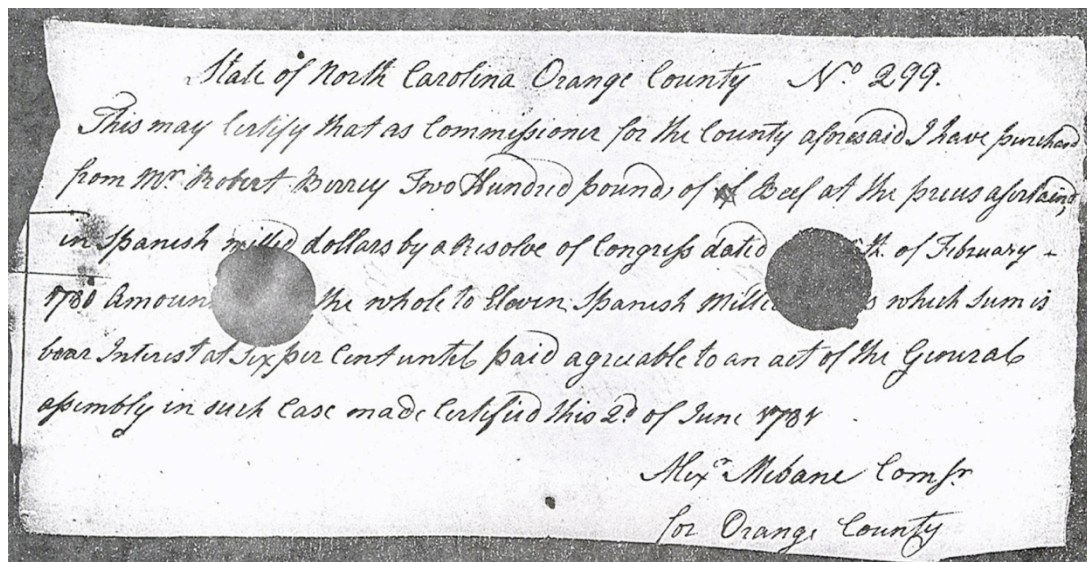 State of North Carolina Orange County No 299.
This may Certify that as Commissioner for the County aforesaid I have purchasd
from Mr. Robert Berrey Two Hundred pounds of Beef at the prices asertaind
in Spanish milled dollars by a Resolve of Congress dated th. of February
1780 Amoun the whole to Eleven Spanish Mille s which Sum is
bear Interest at Six per Cent until paid agreable to an act of the General
assembly in such Case made Certified this 2d of June 1781
Alexr Mebane Comsr.
for Orange County